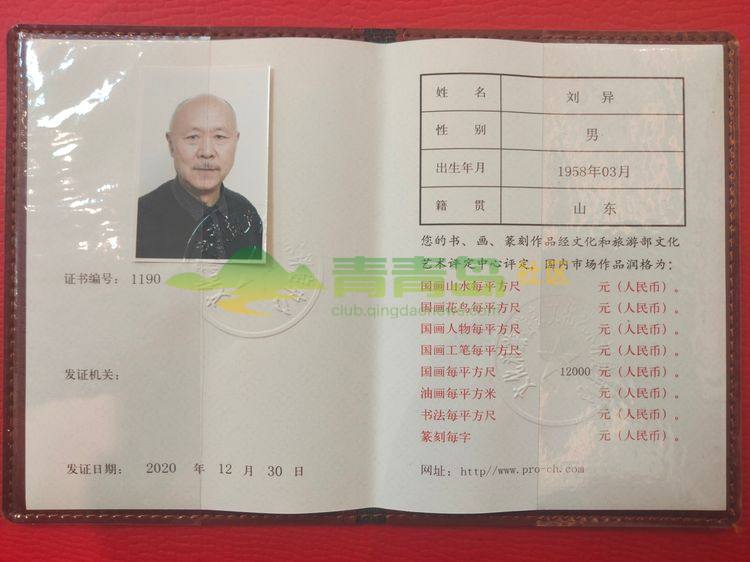 证书编号：1190
发证机关：
发证日期： 2020 年 12 月 30 日
姓 名 刘 异
性 别 男
出生年月 1958年03月
籍 贯 山 东
您的书、画、篆刻作品经文化和旅游部文化
艺术评定中心评定，国内市场作品润格为：
国画山水每平方尺 元（人民币）。
国画花鸟每平方尺 元（人民币）。
国画人物每平方尺 元（人民币）。
国画工笔每平方尺 元（人民币）。
国画每平方尺 12000 元（人民币）。
油画每平方米 元（人民币）。
书法每平方尺 元（人民币）。
篆刻每字 元（人民币）。
网址：http//www.pro-ch.com
青青岛社区
club.qingdaonews.com